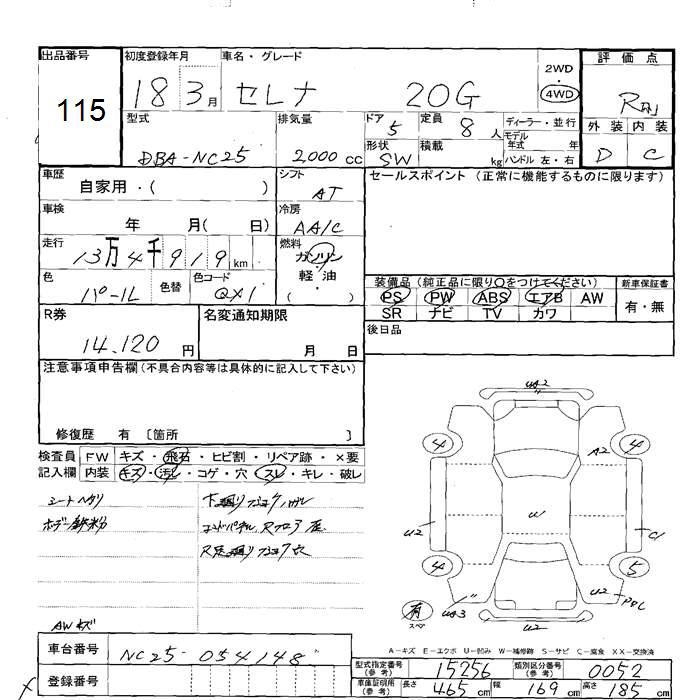 出品番号 初度登録年月 車名・グレード 評価点
115 18 3月 セレナ 20G 2WD・4WD
外装 内装
D C
型式 排気量 ドア 定員 ディーラー・並行
DBA-NC25 2000cc 5 8人 モデル年式 年
形状 積載 kg ハンドル 左・右
SW
車歴 シフト セールスポイント (正常に機能するものに限ります)
自家用・( ) AT
車検 冷房
年 月( 日) AA/C
走行 燃料
13万4千919km ガソリン
軽油
( )
色 色替 色コード
パール QX1
装備品 (純正品に限り○をつけてください) 新車保証書
PS PW ABS エアB AW 有・無
SR ナビ TV カワ
R券 名変通知期限 後日品
14,120円 月 日
注意事項申告欄 (不具合内容等は具体的に記入して下さい)
修復歴 有 〔箇所 〕
検査員 FW キズ・飛石・ヒビ割・リペア跡・×要
記入欄 内装 キズ・汚レ・コゲ・穴・スレ・キレ・破レ
シートヘタリ
ボデー鉄粉
UA2
4 4
A2
U2 W C1
4 5
U2
有
スペア UA3 U2
AWキズ
A-キズ E-エクボ U-凹み W-補修跡 S-サビ C-腐食 XX-交換済
車台番号 NC25-054148
型式指定番号(参考) 15256 類別区分番号(参考) 0052
登録番号
車庫証明用(参考) 長さ 465cm 幅 169cm 高さ 185cm